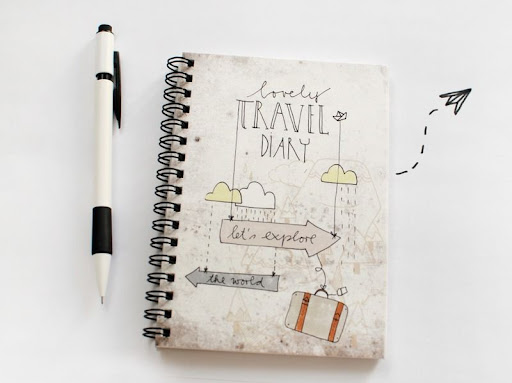 lovely
TRAVEL
DiARY
let's explore
the world